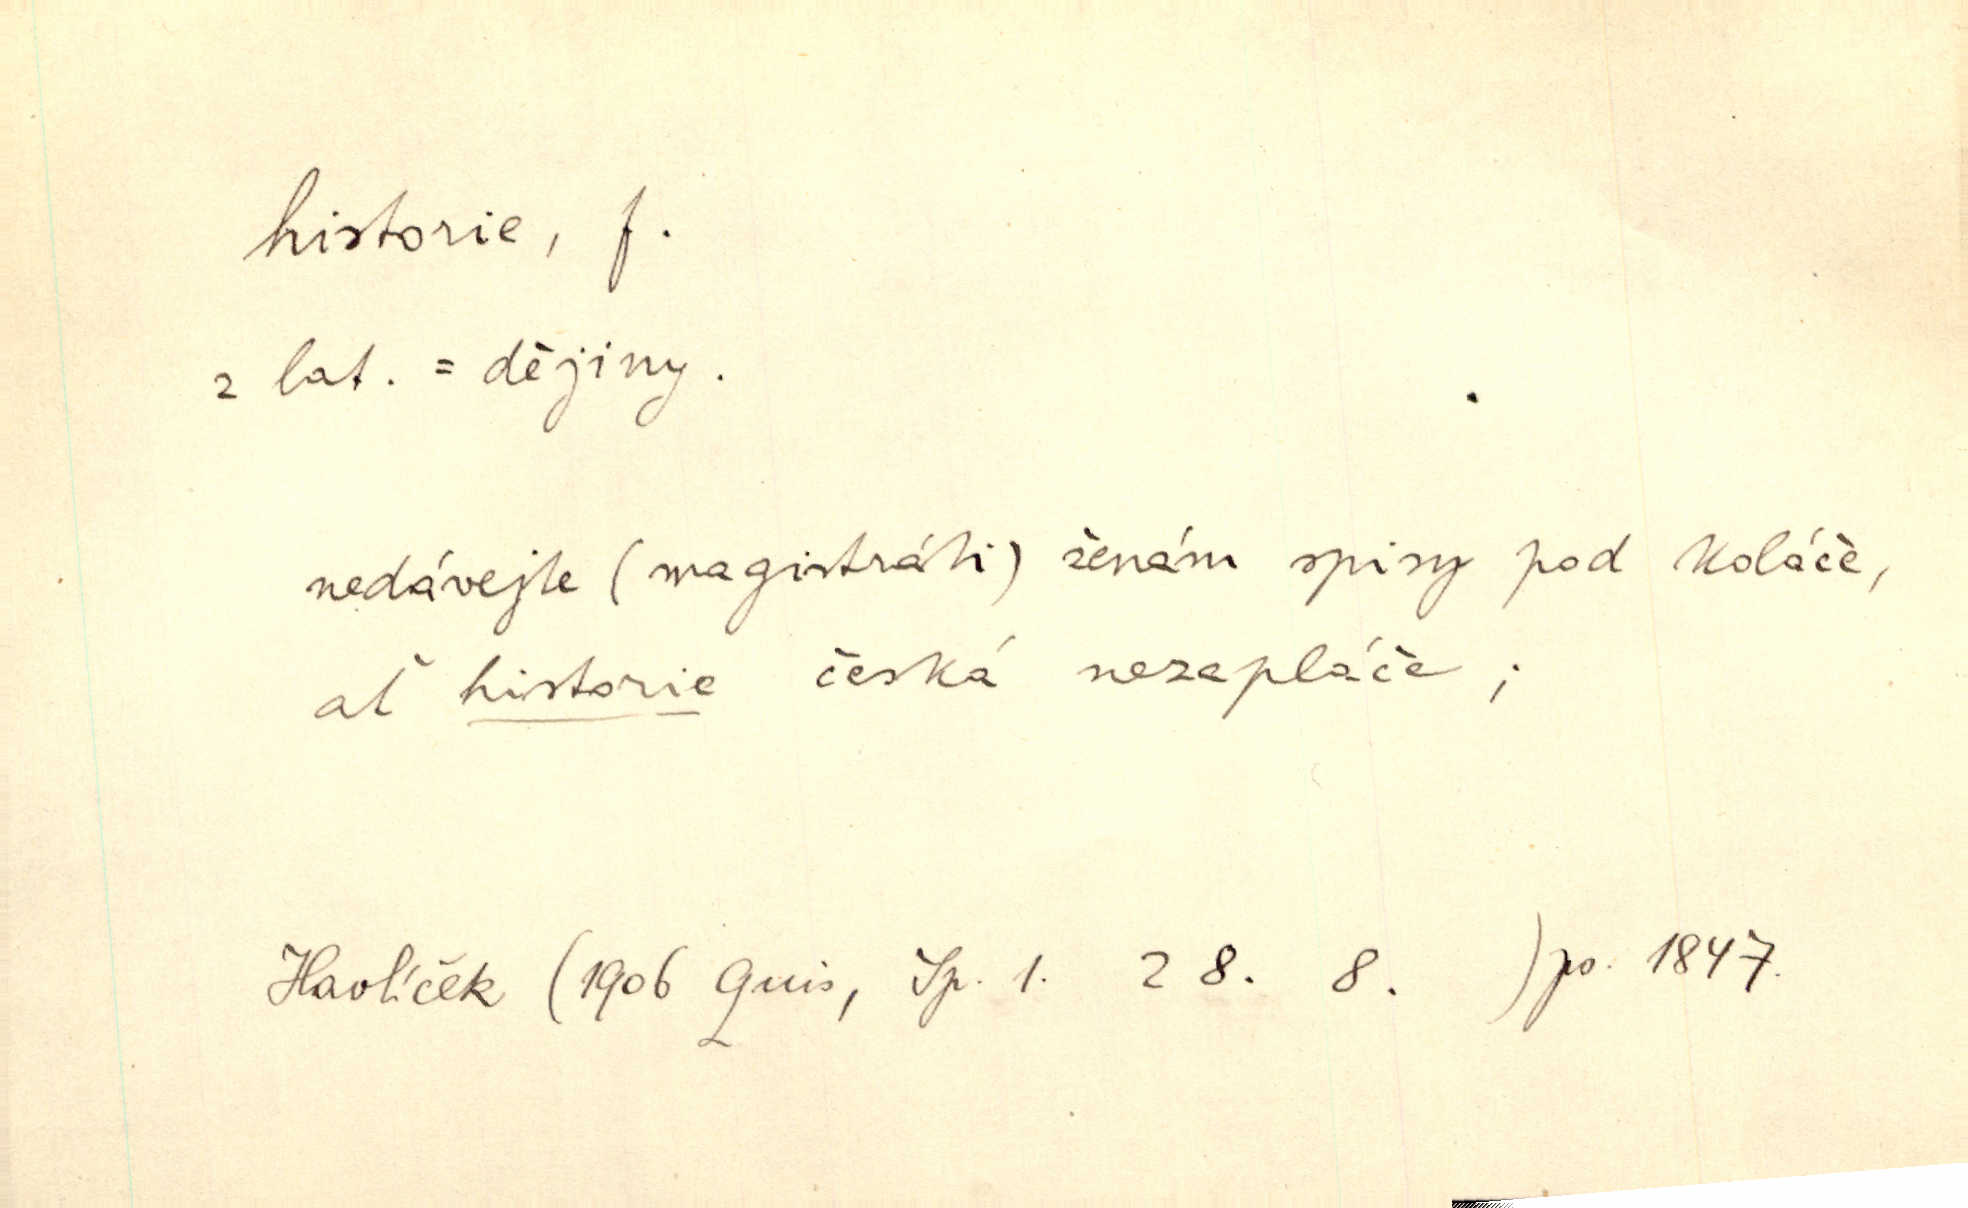 historie, f.
z lat. = dějiny.
nedávejte (magistráti) ženám spisy pod koláče,
ať historie česká nezapláče;
Havlíček (1906 Quis, Sp. 1. 28. 8. ) po. 1847.